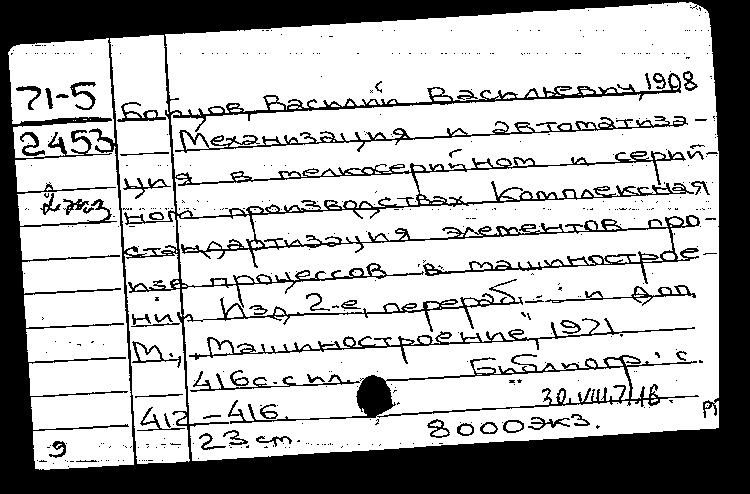 71-5
2453
2 экз
Бойцов, Василий Васильевич, 1908
Механизация и автоматиза-
ция в мелкосерийном и серий-
ном производствах Комплексная
стандартизация элементов про-
изв процессов в машинострое-
нии Изд. 2-е, перераб. и доп.
М., "Машиностроение", 1971.
416 с. с ил. Библиогр.: с.
412-416. 30.VIII.71
23 см. 8000 экз.
9